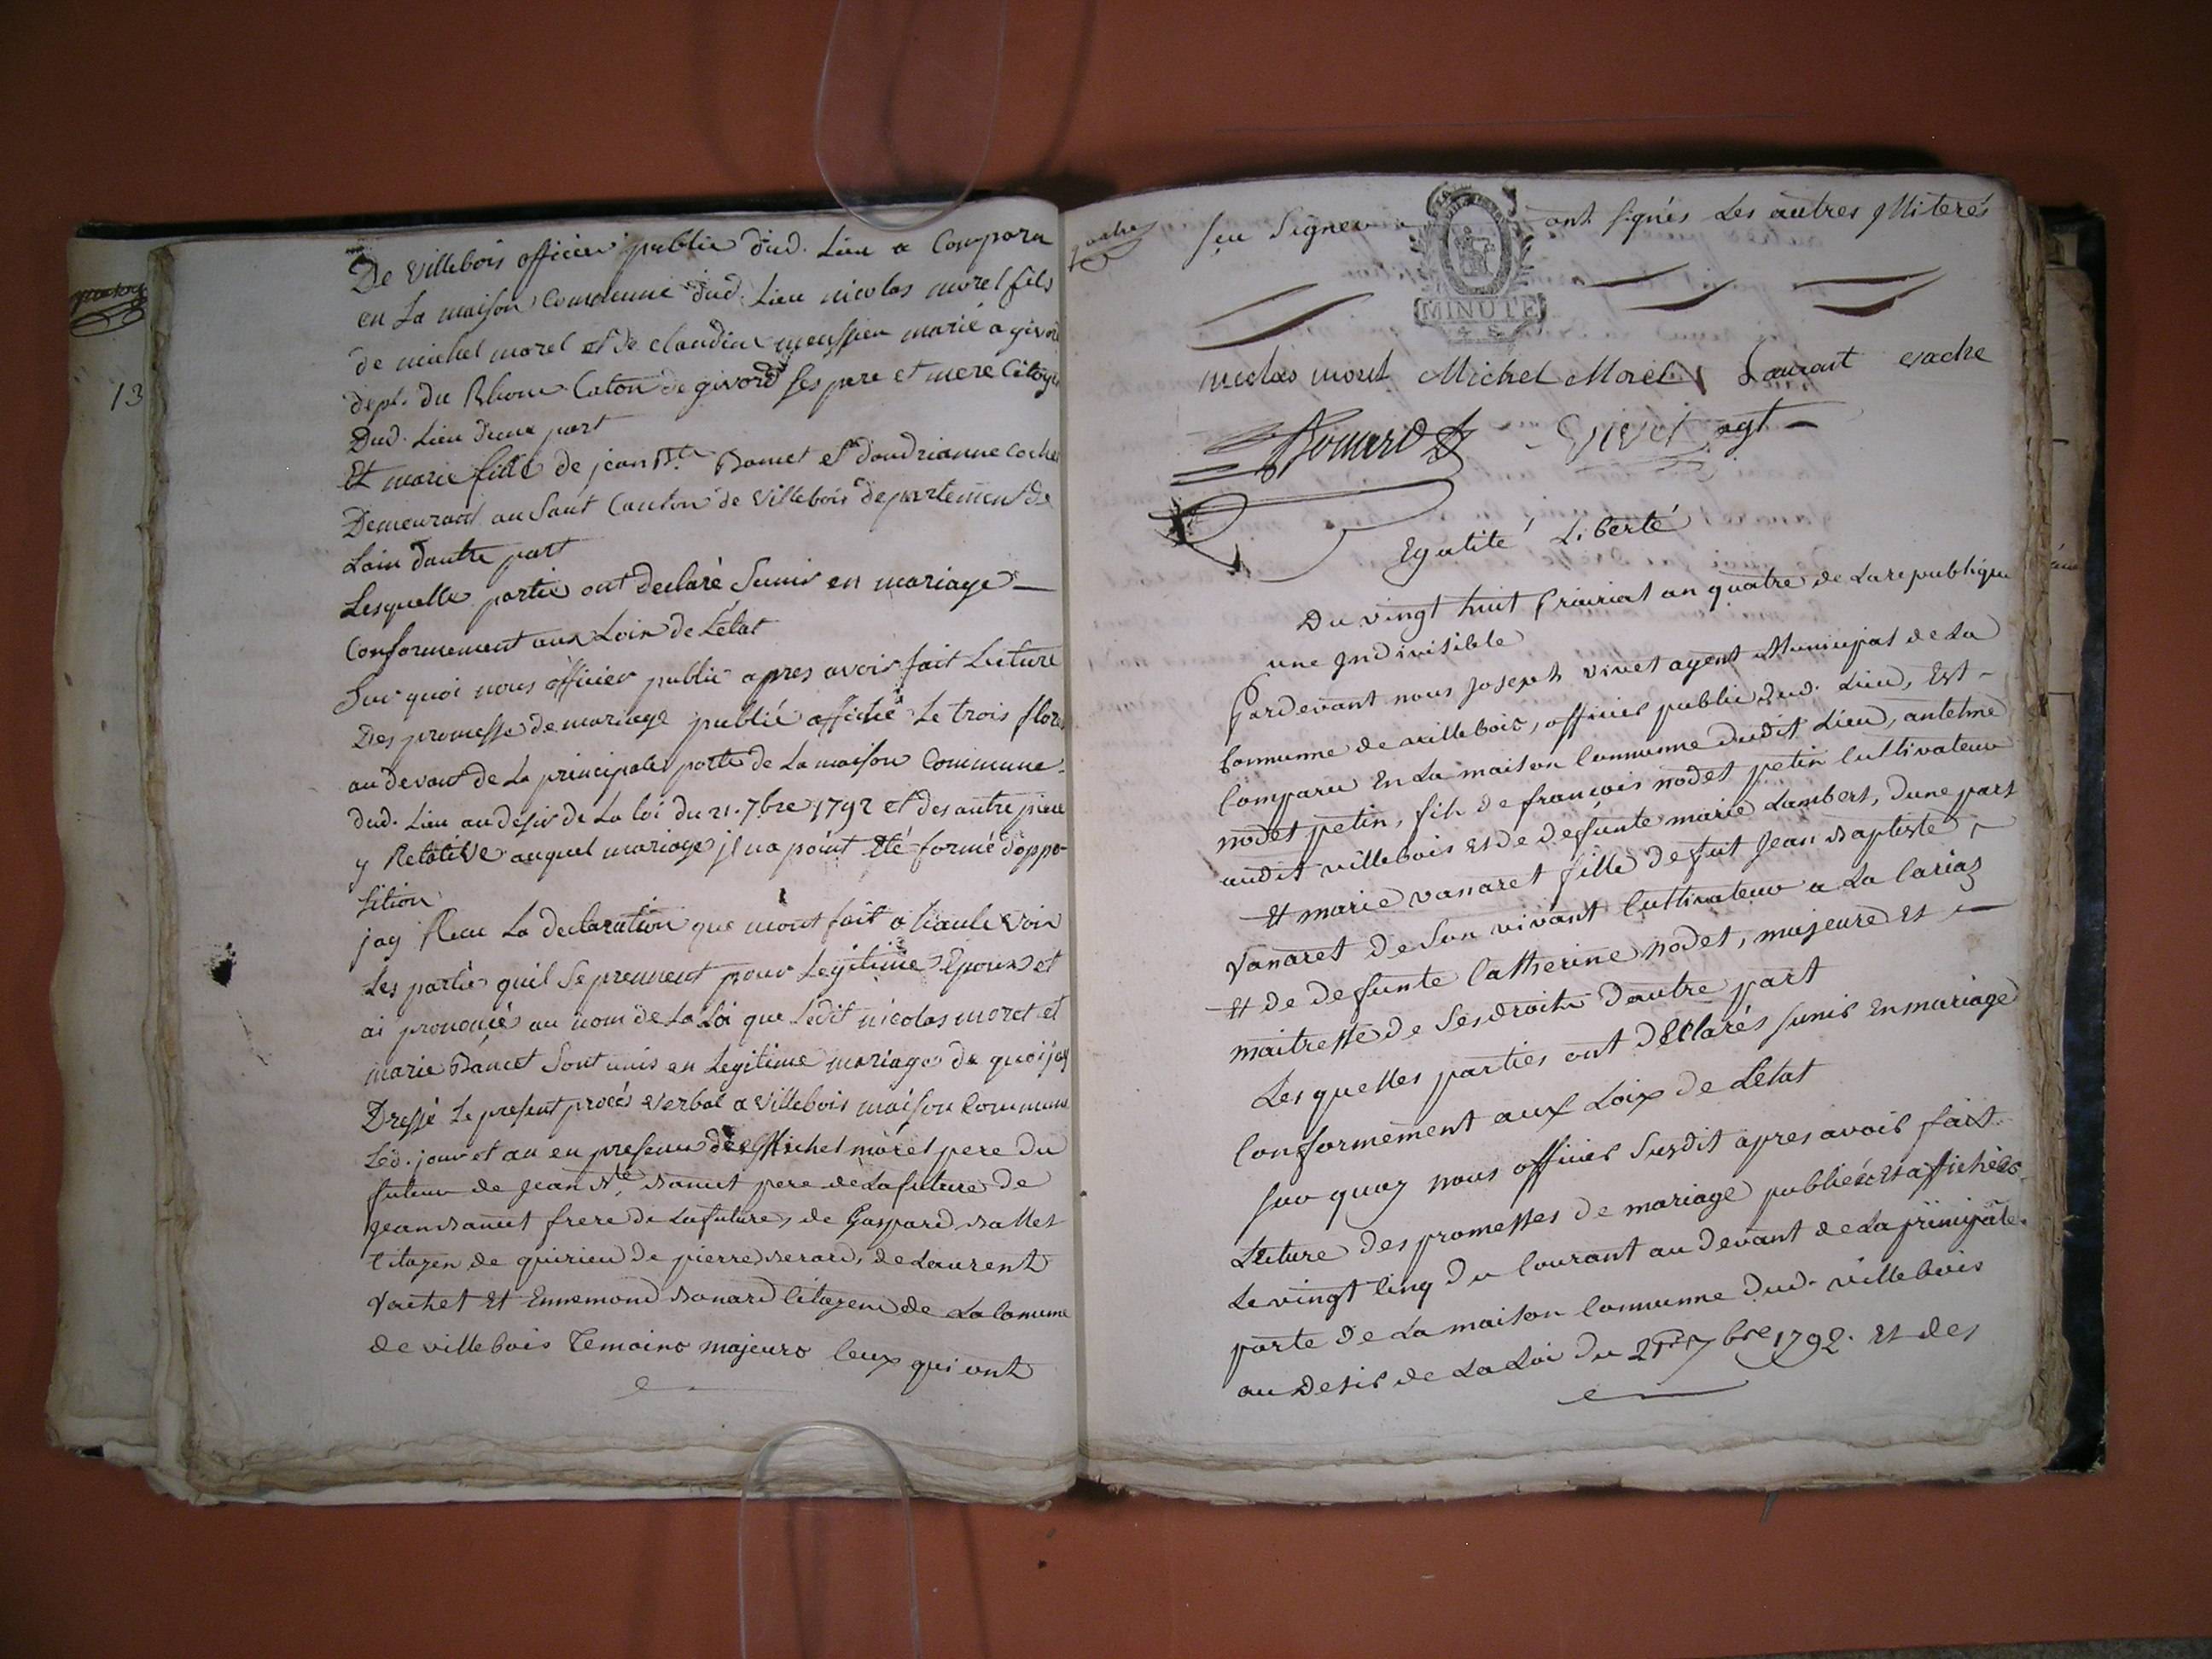 13
De villebois officier public dud. Lieu a Comparu
en La maison Commune dud. Lieu nicolas morel fils
de michel morel et de claudine meussieu marié a givor
dept. du Rhone Caton de givord ses pere et mere Citoyen
Dud. Lieu d'une part
Et marie fille de jean Bte. Banet et dandrianne
Demeurant au Saut Canton de Villebois departement de
Lain dautre part
Lesquelle partie ont declaré Sunir en mariage
Conformement aux Loix de Létat
Sur quoi nous officier public apres avoir fait Lecture
Des promesse de mariage publié affiché Le trois flore
au devant de La principale porte de La maison Commune
dud. Lieu au desir de La loi du 21. 7bre 1792 et des autre piece
y Relative auquel mariage il na point été formé doppo
sition
jay Recu La declaration que mont fait a haute voix
Les partie quil Se prennent pour Legitime Epoux et
ai prononcé au nom de La Loi que Ledit nicolas morel et
marie Banet Sont unis en Legitime mariage de quoi jay
Dressé Le present procés verbal a Villebois maison Commune
Led. jour et an en presence de Michel morel pere du
futur de Jean Bte. Banet pere de La future de
Jean Banet frere de La future, de Gaspard Ballet
Citoyen de quirieu de pierre Berard, de Laurent
Vachet Et Ennemond Bonard Citoyens de La Comune
de villebois Temoins majeurs Ceux qui ont
sçu Signer ont signés Les autres Illiterés
MINUTE
4 S
nicolas morel Michel Morel Laurant vache
Bonard Vivet agt
Egalité Liberté
Du vingt huit Prairial an quatre de La republique
une Indivisible
Pardevant nous Joseph vivet agent Municipal de La
Commune de villebois, officier public dud. Lieu, Est
Comparu En La maison Commune dudit Lieu, antelme
nodet petin, fils de françois nodet petin Cultivateur
audit villebois Et de defunte marie Lambert, dune part
Et marie vanaret fille defut Jean Baptiste
Vanaret de Son vivant Cultivateur a La Carias
Et de defunte Catherine nodet, majeure Et
maitresse de Ses droits dautre part
Lesquelles parties ont déClarés sunir En mariage
Conformement aux Loix de Létat
Sur quoy nous officier Susdit apres avoir fait
Lecture des promesses de mariage publiées Et affichées
Le vingt Cinq du Courant au devant de La principale
porte de La maison Commune dud. villebois
au desir de La Loi du 21. 7bre 1792. Et des